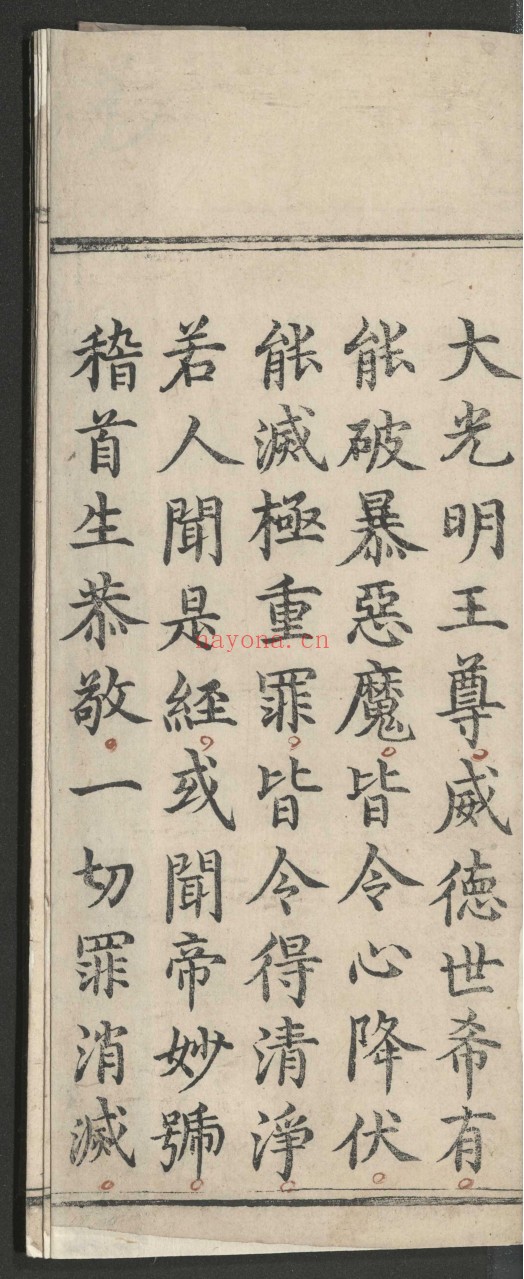 大光明王尊。威德世希有。
能破暴惡魔。皆令心降伏。
能滅極重罪。皆令得清淨。
若人聞是經。或聞帝妙號。
稽首生恭敬。一切罪消滅。
nayona.cn